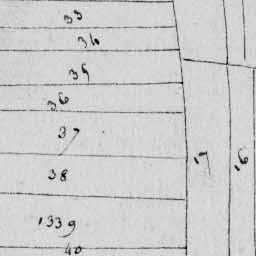 33
34
35
36
37
38
1339
40
17
16